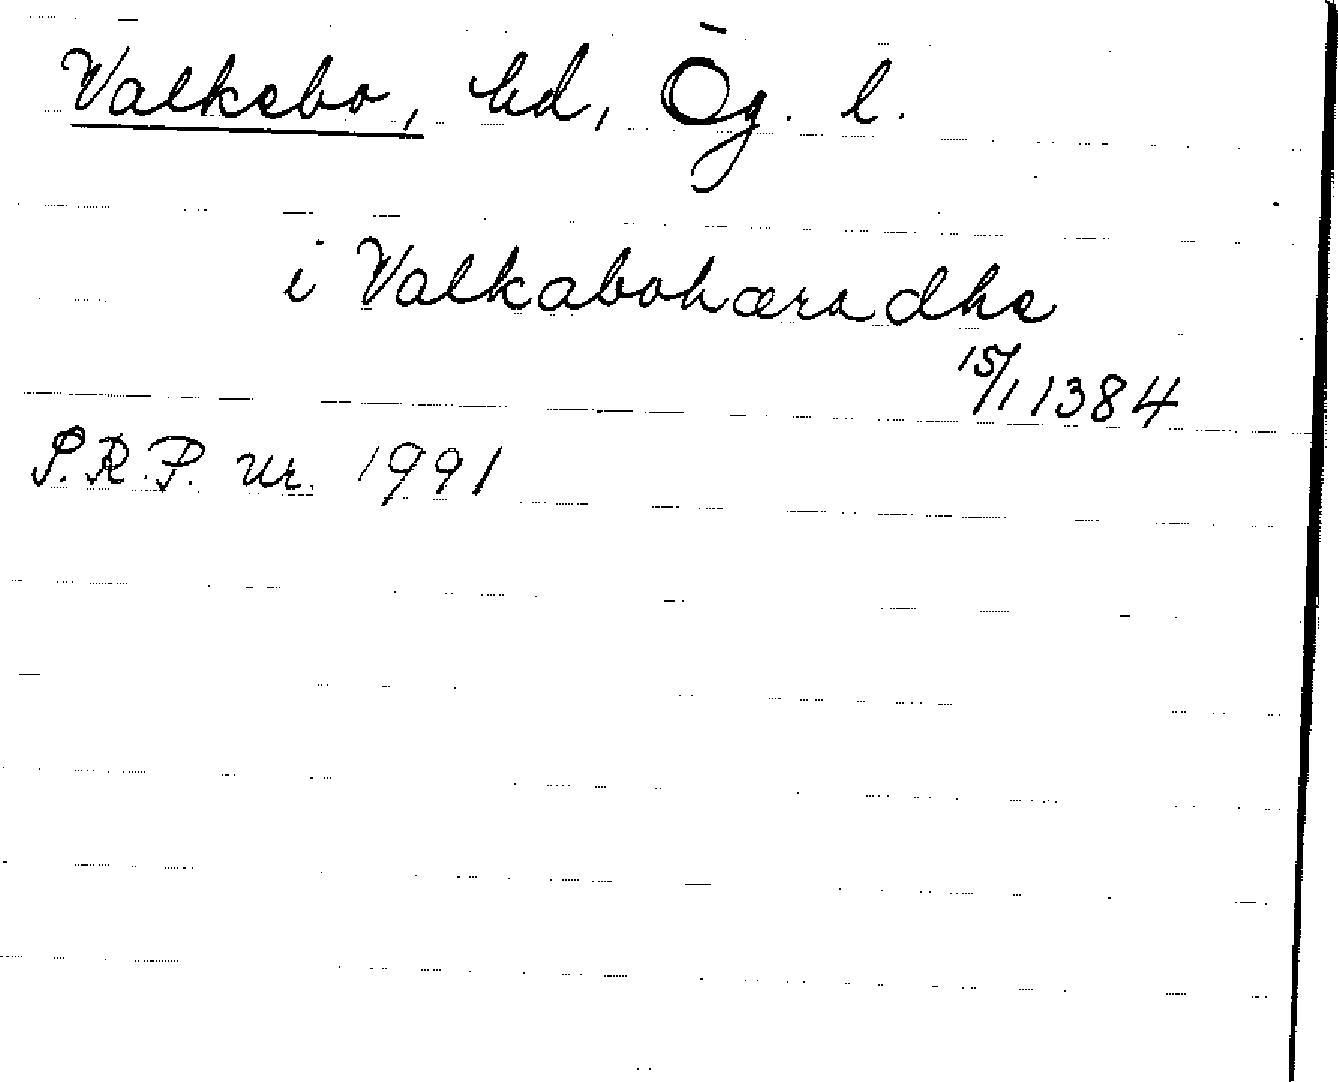 Valkebo, hd, Ög. l.
i Valkabohæradhe
15/1 1384
S.R.P. nr. 1991